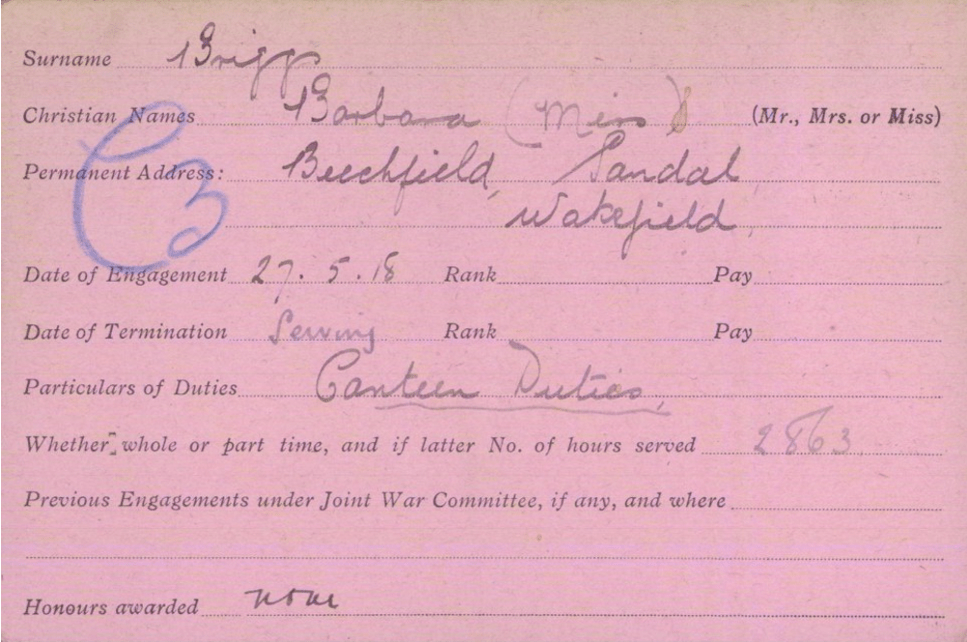 Surname Brigg
Christian Names Barbara (Miss) (Mr., Mrs. or Miss)
Permanent Address: Beechfield, Sandal,
Wakefield.
C3
Date of Engagement 27.5.18 Rank Pay
Date of Termination Serving Rank Pay
Particulars of Duties Canteen Duties.
Whether whole or part time, and if latter No. of hours served 2863
Previous Engagements under Joint War Committee, if any, and where
Honours awarded none